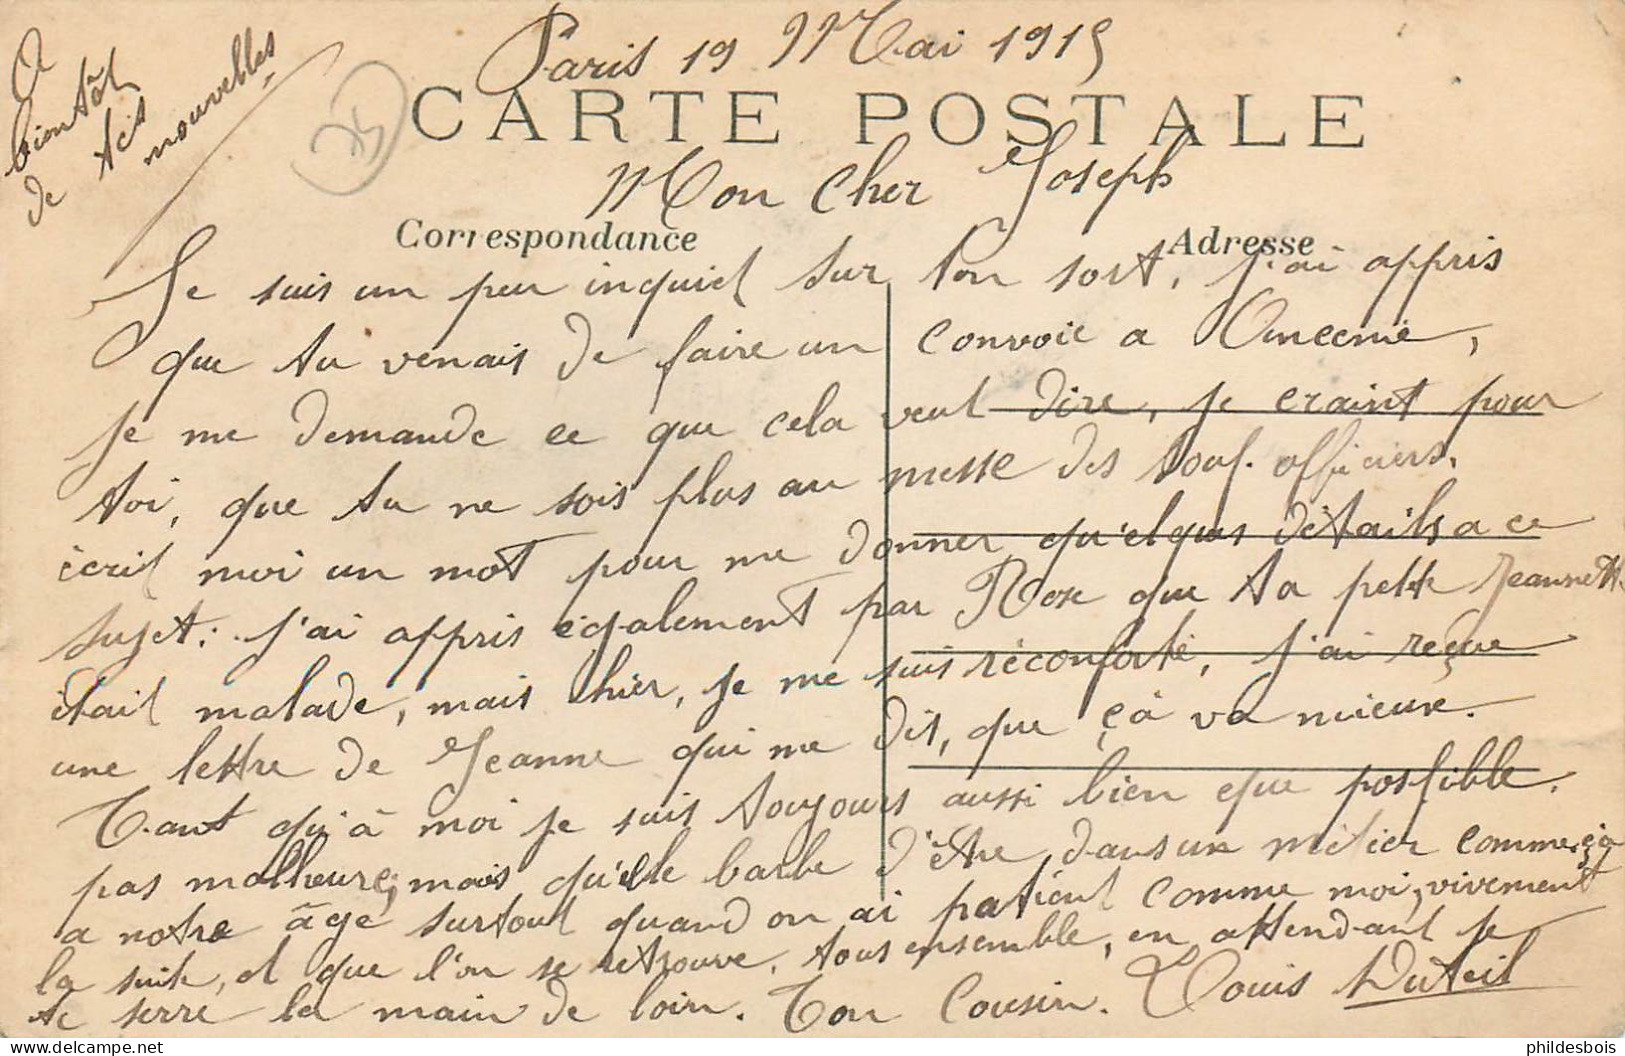 Paris 19 Mai 1915
A
bientôt
de tes
nouvelles
75
CARTE POSTALE
Mon Cher Joseph
Correspondance
Adresse
Je suis un peu inquiet sur ton sort, j'ai appris
que tu venais de faire un convoie a
je me demande ce que cela veut dire, je craint pour
toi, que tu ne sois plus au messe des sous. officiers.
écrit moi un mot pour me donner qu'elques détails a ce
sujet: j'ai appris également par Rose que ta petite Jeannette
était malade, mais hier, je me suis réconforté, j'ai reçue
une lettre de Jeanne qui me dit, que çà va mieux.
Tant qu'à moi je suis toujours aussi bien que possible.
pas malheureux, mais qu'elle barbe d'être dans un métier comme ça
a notre âge surtout quand on ai patient comme moi, vivement
la suite, et que l'on se retrouve, tous ensemble, en attendant je
te serre la main de loin. Ton Cousin. Louis Duteil
phildesbois